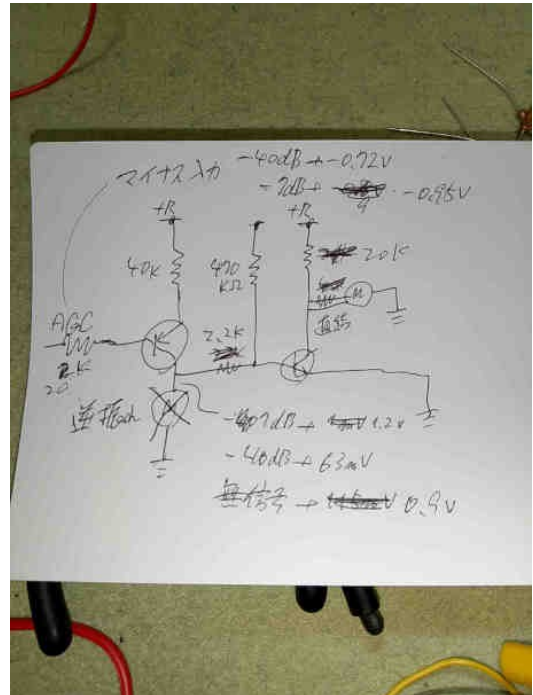 マイナス入力 -40dB → -0.72V
-7dB → -0.95V
+B
+B
40K
470
KΩ
20K
M
直結
AGC
2.2K
20K
-7dB → 1.2V
-40dB → 63mV
無信号 → 0.9V